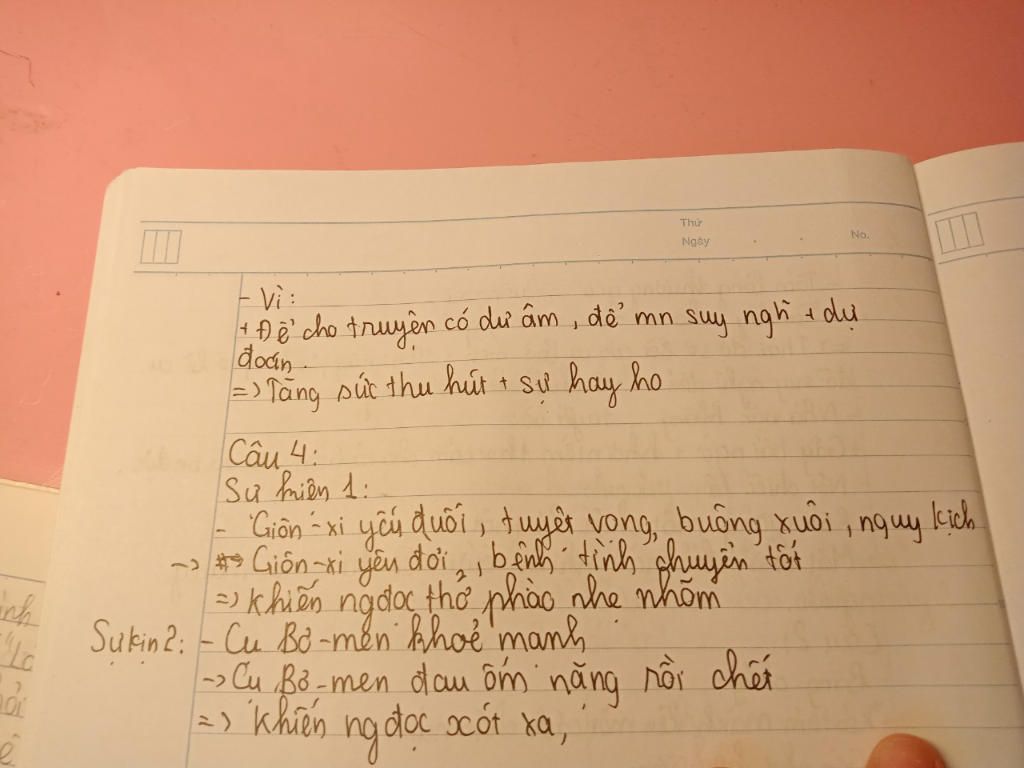 Thứ
Ngày
No.
- Vì:
+ Để cho truyện có dư âm, để mn suy nghĩ + dự
đoán.
=> Tăng sức thu hút + sự hay ho
Câu 4:
Sự kiện 1:
- Giôn-xi yếu đuối, tuyệt vọng, buông xuôi, nguy kịch
-> Giôn-xi yêu đời, bệnh tình chuyển tốt
=> Khiến ng đọc thở phào nhẹ nhõm
Sự kịn 2: - Cụ Bơ-men khoẻ mạnh
-> Cụ Bơ-men đau ốm nặng rồi chết
=> Khiến ng đọc xót xa,